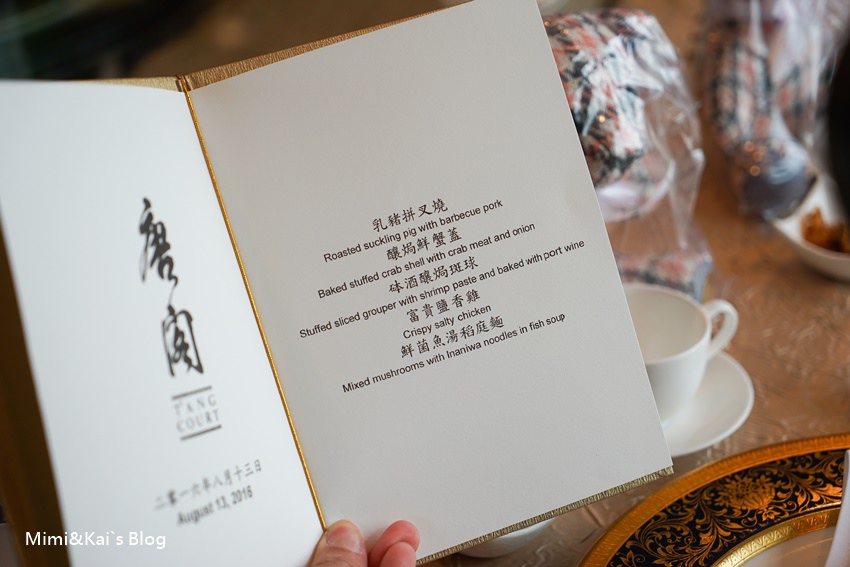 唐閣
T'ANG
COURT
二零一六年八月十三日
August 13, 2016
乳豬拼叉燒
Roasted suckling pig with barbecue pork
釀焗鮮蟹蓋
Baked stuffed crab shell with crab meat and onion
砵酒釀焗斑球
Stuffed sliced grouper with shrimp paste and baked with port wine
富貴鹽香雞
Crispy salty chicken
鮮菌魚湯稻庭麵
Mixed mushrooms with Inaniwa noodles in fish soup
Mimi&Kai`s Blog